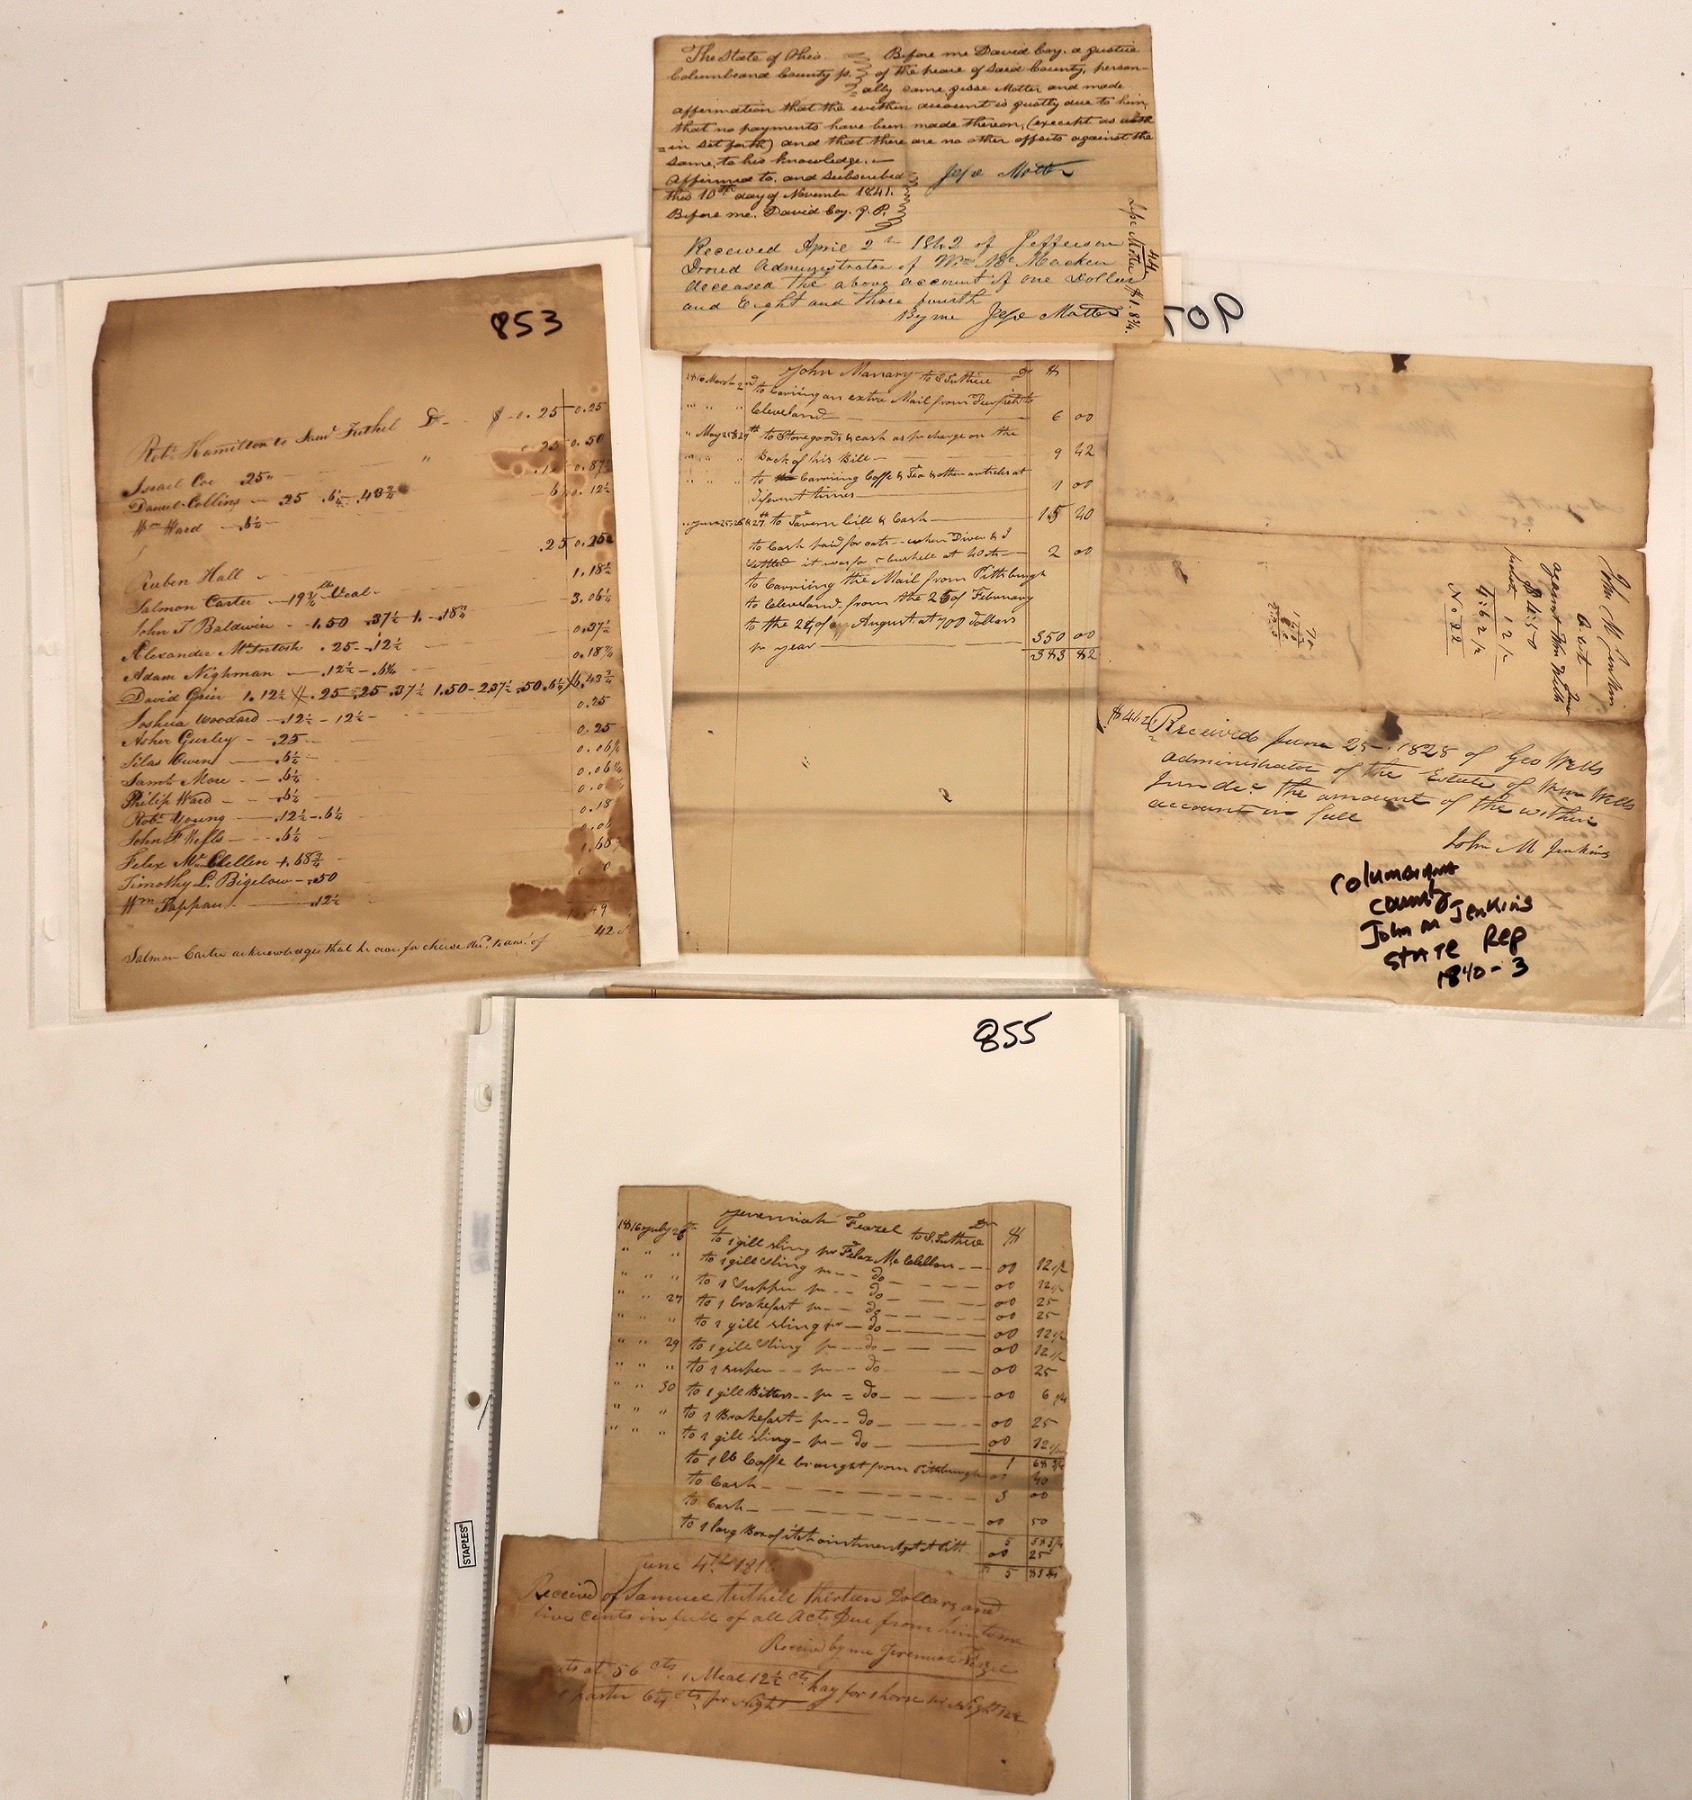 The State of Ohio Before me David Coy, a Justice
Columbiana County of the peace of Said County, person-
ally came Jesse Motter and made
affirmation that the within account is justly due to him,
that no payments have been made thereon, (except as with
=in set forth) and that there are no other offsets against the
same, to his knowledge.
Affirmed to, and subscribed Jesse Motter
this 10th day of November 1841.
Before me. David Coy. J. P.
Received April 2 1842 of Jefferson
administrator of Wm
deceased the above account of one Dollar
and Eight and three fourth
By me Jesse Motter
44
Jesse Motter
$1.8¾.
853
Robt Hamilton to Saml Tuthel Dr $ 0.25 0.25
Israel Coe .25 0.50
Daniel Collins .25 .6¼ .43¾
Wm Ward .6¼
.25
Ruben Hall
Salmon Carter 19¾ lb Veal 1.18½
John T Baldwin 1.50 .37½ 1. .18¾ 3.06¼
Alexander McIntosh .25 .12½ 0.37½
Adam Nighman .12½ .6¼ 0.18¾
David Grier 1.12½ .25 .25 .37½ 1.50 2.37½ .50 .6¼ 6.43¾
Joshua Woodard .12½ 12½ 0.25
Asher Gurley .25 0.25
Silas Owen .6¼ 0.06¼
Saml More .6¼ 0.06¼
Philip Ward .6¼
Robt Young .12½ .6¼ 0.18
John F Wells .6¼
Felix McClellen 1.68¾
Timothy L. Bigelow .50
Wm Tappan .12½
Salmon Carter acknowledges that he owes for cheese
John Manary to S Tuthill Dr $
1816 March 2nd to Carriing an extra Mail from
Cleveland 6 00
" May 28 & 29th to Store goods & cash as pr charge on the
Back of his Bill 9 42
to Carriing Coffe & Tea & other articles at
diferent times 1 00
" June 25, 26 & 27th to Tavern bill & Cash 15 40
to Cash paid for oats when Diver & I
settled it was for 5 bushels at 40 cts 2 00
to Carriing the Mail from Pittsburgh
to Cleveland from the 25 of February
to the 24 of August at 700 dollars
pr year 350 00
383 82
John M Jenkins
acct
against Wm Wells
Junr
$4:50
12½
4:62½
No 22
$4.62½ Received June 25 1825 of Geo Wells
administrator of the Estate of Wm Wells
Jun dec the amount of the within
account in full
John M Jenkins
Columbiana
county
John M Jenkins
State Rep
1840-3
855
Jeremiah Feazel to S. Tuthill Dr $
1816 July 26th to 1 gill sling pr Felix McClellan 00 12½
" " " to 1 gill sling pr do 00 12½
" " " to 1 Supper pr do 00 25
" " 27 to 1 brakefast pr do 00 25
" " " to 1 gill sling pr do 00 12½
" " 29 to 1 gill sling pr do 00 12½
" " " to 1 super pr do 00 25
" " 30 to 1 gill Bitters pr do 00 6¼
" " " to 1 Brakefast pr do 00 25
" " " to 1 gill sling pr do 00 12½
1 68¾
to 1 lb Coffe brought from Pittsburgh 40
to Cash 3 00
to Cash 00 50
5 58¾
to 1 larg Box of itch ointment got at Pitt 00 25
$ 5 83¾
June 4th 181
Received of Samuel Tuthill thirteen Dollars and
five cents in full of all Acts Due from him to me
Received by me Jeremiah Feazel
at 56 cts, 1 Meal 12½ cts hay for 1 horse pr Night
paster 6¼ cts pr Night
STAPLES